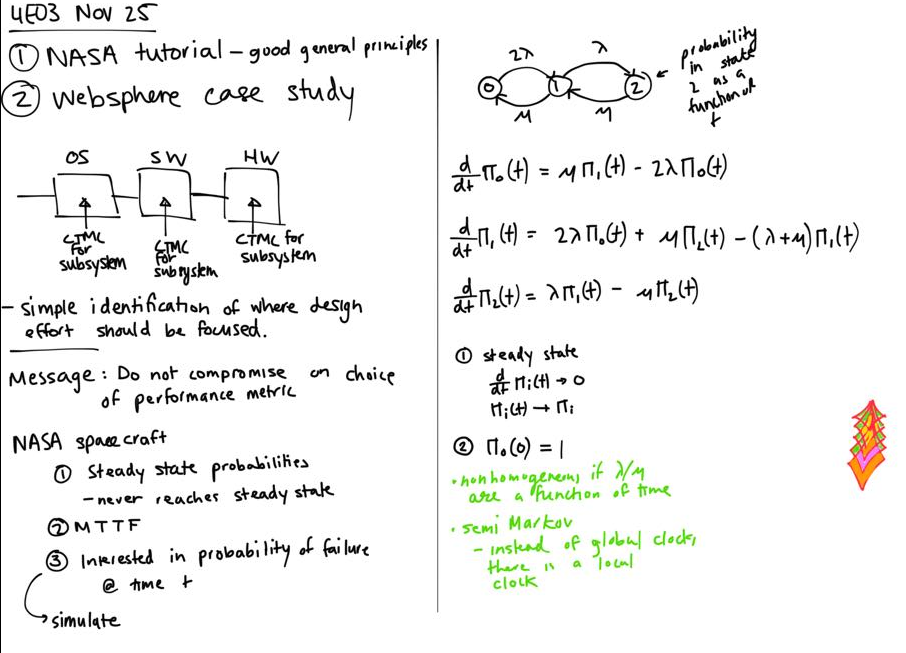 4E03 Nov 25
① NASA tutorial – good general principles
② Websphere case study
OS SW HW
CTMC for subsystem
CTMC for subsystem
CTMC for subsystem
- simple identification of where design
effort should be focused.
Message: Do not compromise on choice
of performance metric
NASA spacecraft
① Steady state probabilities
- never reaches steady state
② MTTF
③ Interested in probability of failure
@ time t
simulate
2λ λ
0 1 2
μ μ
probability
in state
2 as a
function of
t
d/dt Π₀(t) = μΠ₁(t) - 2λΠ₀(t)
d/dt Π₁(t) = 2λΠ₀(t) + μΠ₂(t) - (λ+μ)Π₁(t)
d/dt Π₂(t) = λΠ₁(t) - μΠ₂(t)
① steady state
d/dt Πᵢ(t) → 0
Πᵢ(t) → Πᵢ
② Π₀(0) = 1
• nonhomogenous if λ/μ
are a function of time
• semi Markov
- instead of global clock,
there is a local
clock